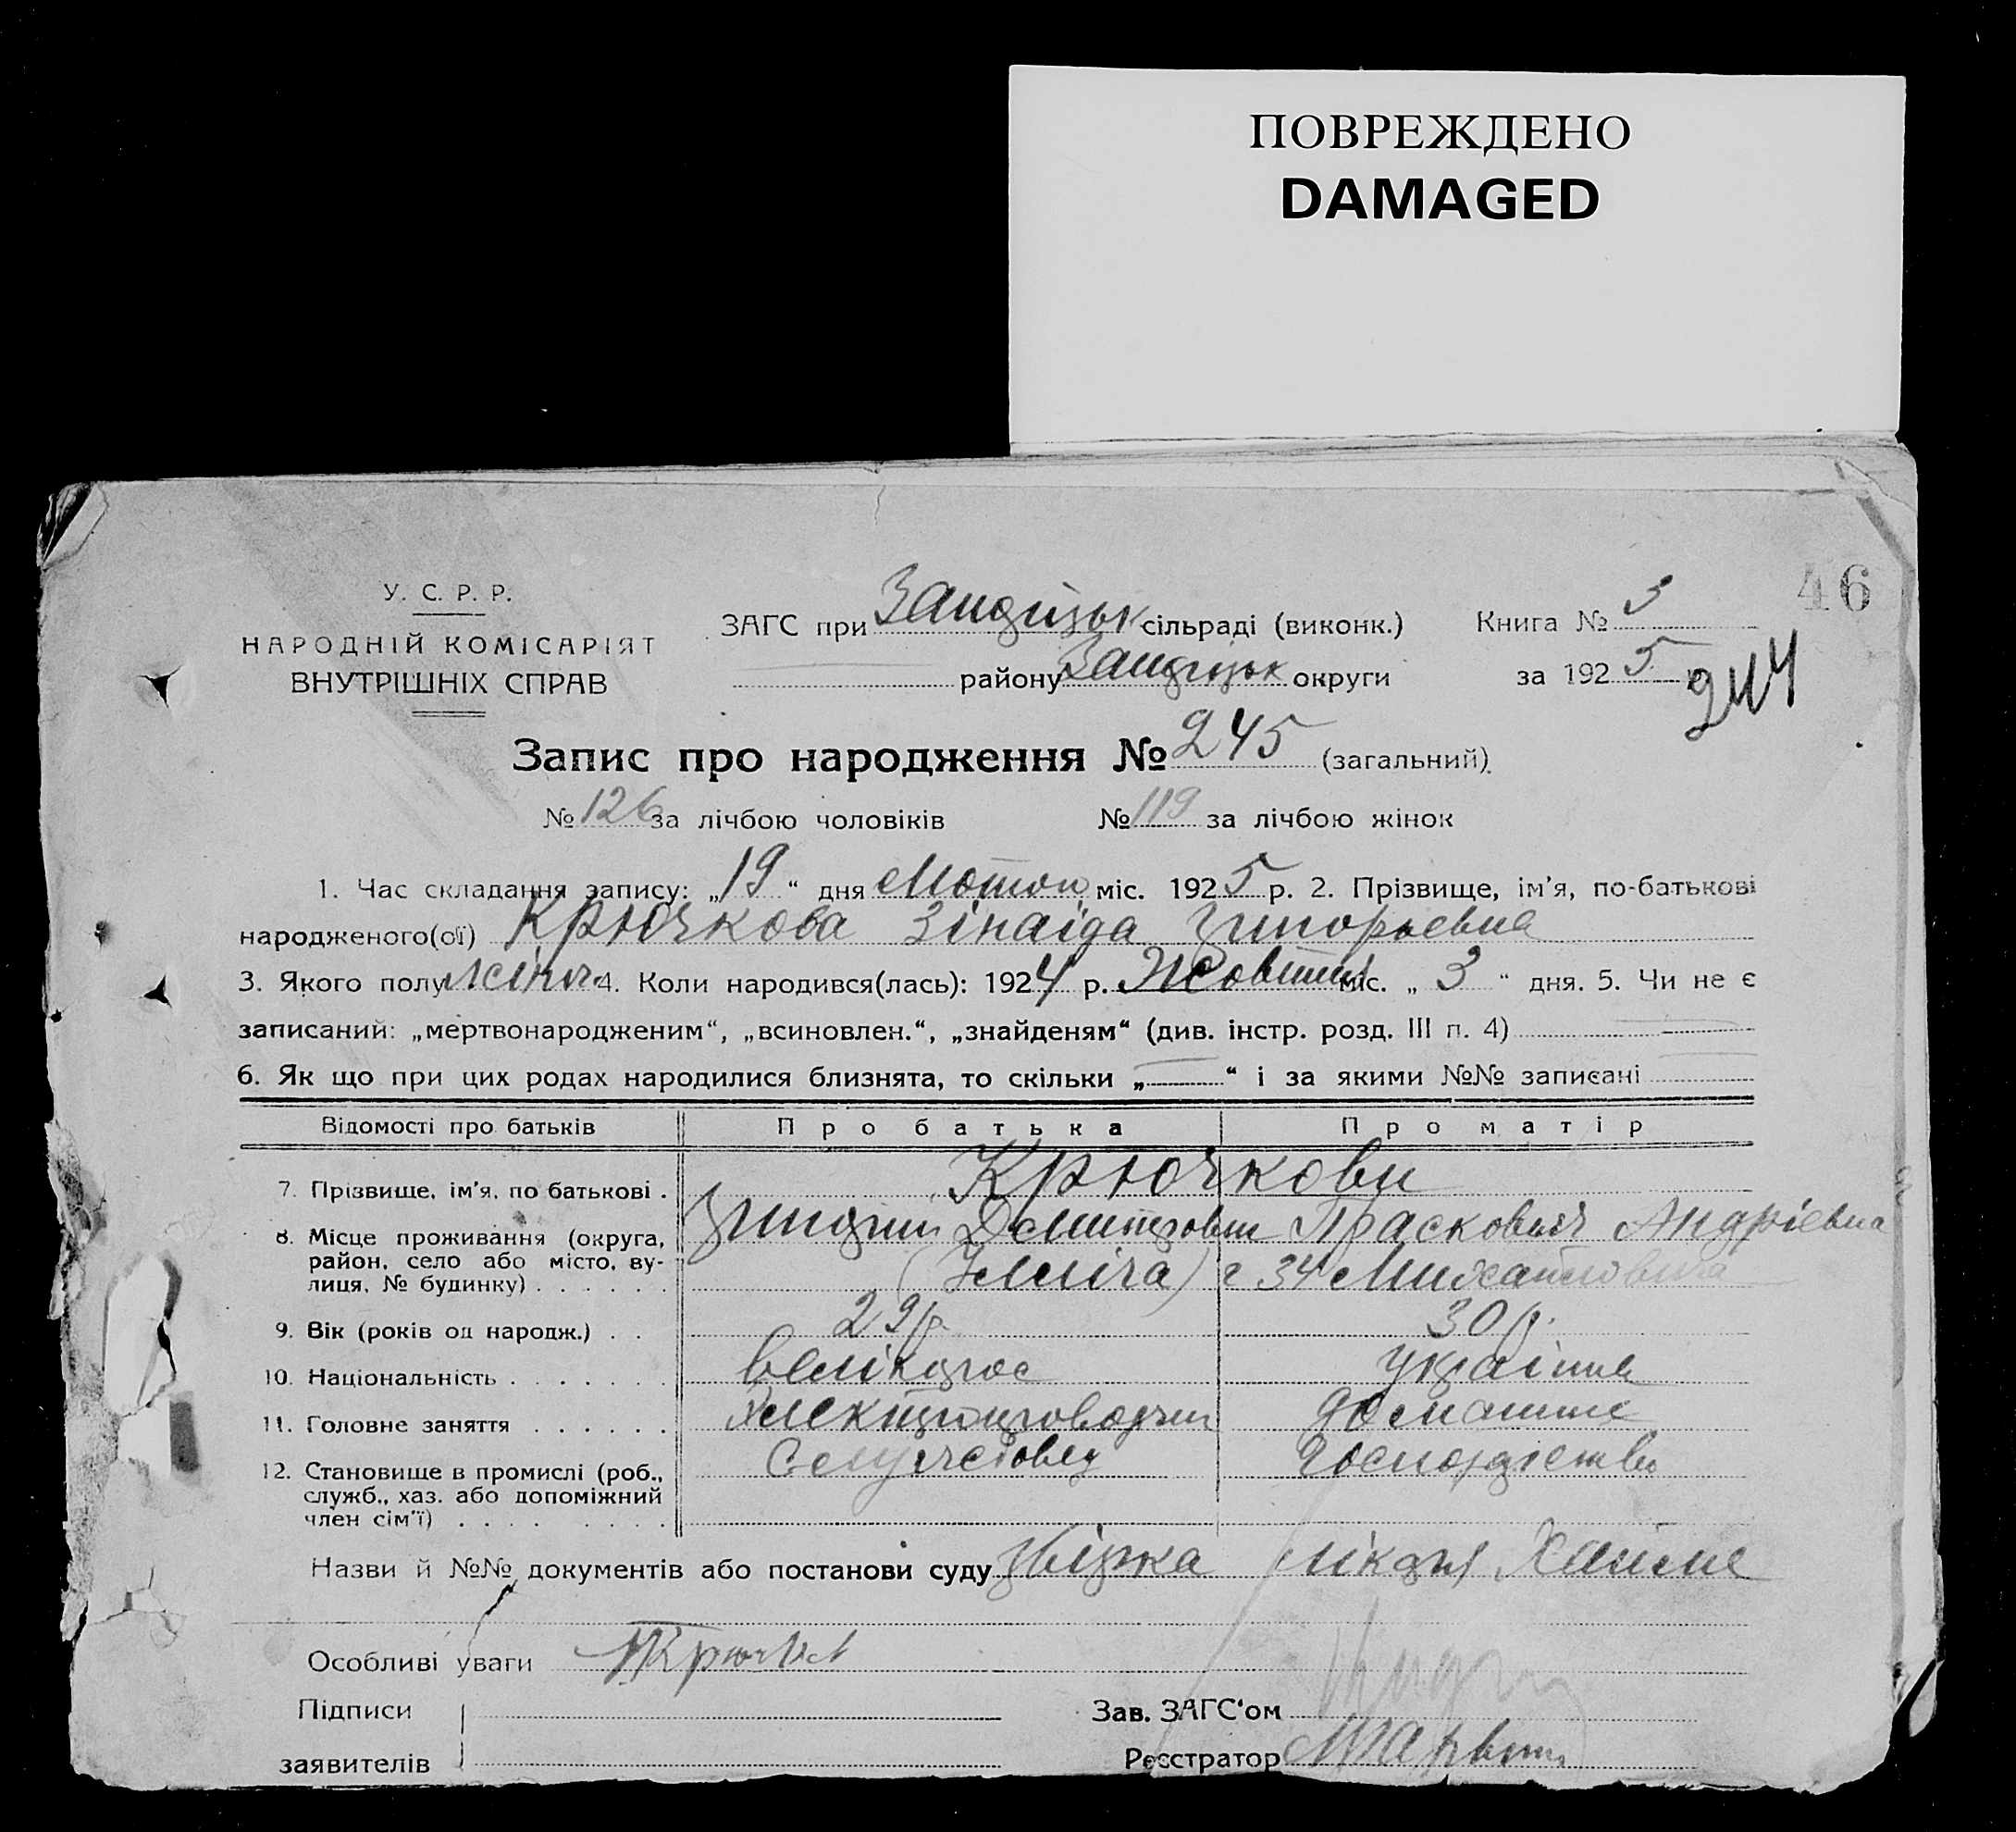 ПОВРЕЖДЕНО
DAMAGED
46
У. С. Р. Р.
НАРОДНІЙ КОМІСАРІЯТ
ВНУТРІШНІХ СПРАВ
ЗАГС при сільраді (виконк.)
району округи
Книга № 3
за 1925 р.
244
Запис про народження № 245 (загальний)
№ 126 за лічбою чоловіків № 119 за лічбою жінок
1. Час складання запису: „19“ дня міс. 1925 р. 2. Прізвище, ім'я, по-батькові
народженого(ої) Крючкова Зінаіда Григорьевна
3. Якого полу жіноч 4. Коли народився(лась): 1924 р. Жовтня міс. „3“ дня. 5. Чи не є
записаний: „мертвонародженим“, „всиновлен.“, „знайденям“ (див. інстр. розд. III п. 4)
6. Як що при цих родах народилися близнята, то скільки „—“ і за якими №№ записані
Відомості про батьків Про батька Про матір
7. Прізвище, ім'я, по батькові . Крючкови
8. Місце проживання (округа, Дмитрович Прасковья Андріевна
район, село або місто, ву-
лиця, № будинку) . . . . . . (Ілліча) 34
9. Вік (років од народж.) . . 29 р. 30 р.
10. Національність . . . . . . . великорос українка
11. Головне заняття . . . . . . домашнє
12. Становище в промислі (роб., господарство
служб., хаз. або допоміжний
член сім'ї) . . . . . . . .
Назви й №№ документів або постанови суду лікаря
Особливі уваги
Підписи
заявителів
Зав. ЗАГС'ом
Реєстратор